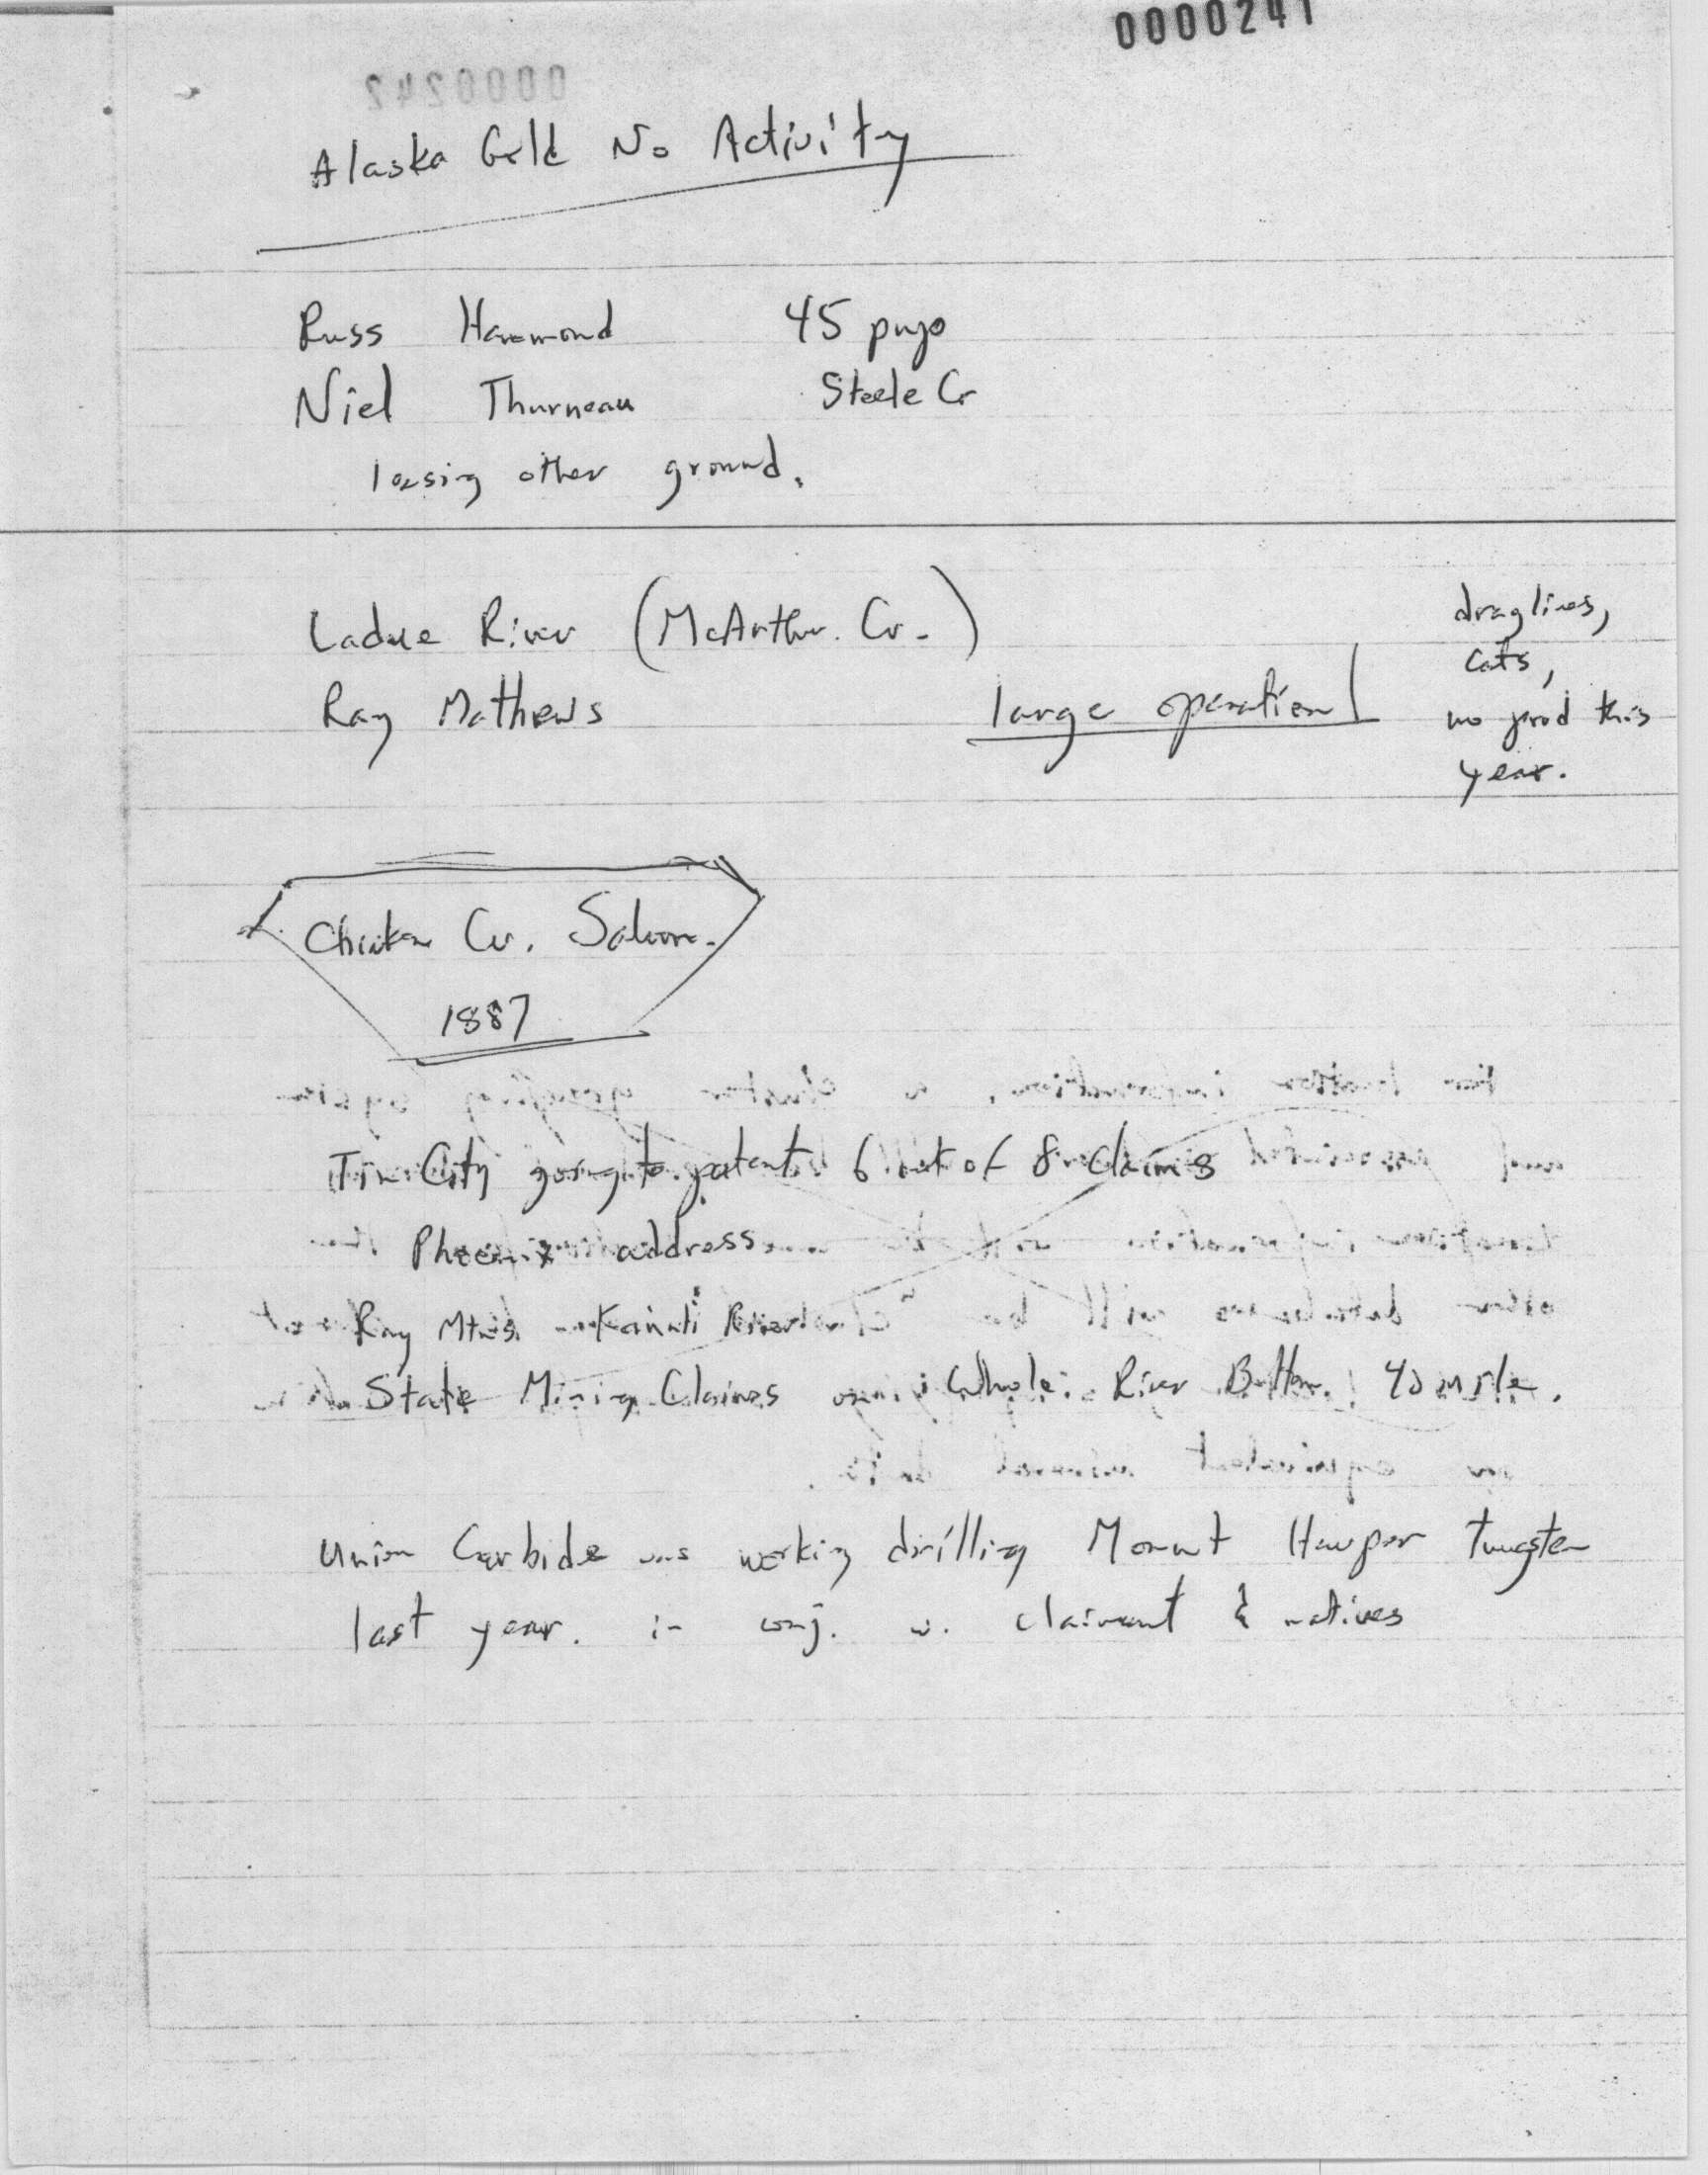 0000241
Alaska Gold No Activity
Russ Hammond 45 pugo
Niel Thurneau Steele Cr
leasing other ground.
Ladue River (McArthur Cr.)
draglines,
cats,
Ray Mathews large operation no prod this
year.
Chicken Cr. Saloon.
1887
Tin City going to patent 6 out of 8 claims
Phoenix address
Ray Mtns. Kanuti River
State Mining Claims Whole River Bottom. 40 mile.
Union Carbide was working drilling Mount Harper tungsten
last year. in conj. w. claimant & natives